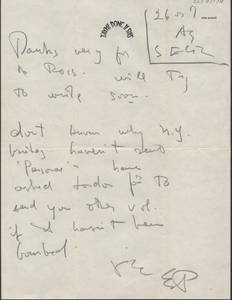 26 ... 7
Ag
Thanks very for
to Ross. will Try
To write soon.
don't know why N.Y.
haven't sent
"Personae" - have
asked London for To
send you other vol.
if it hasn't been
bombed.
EP